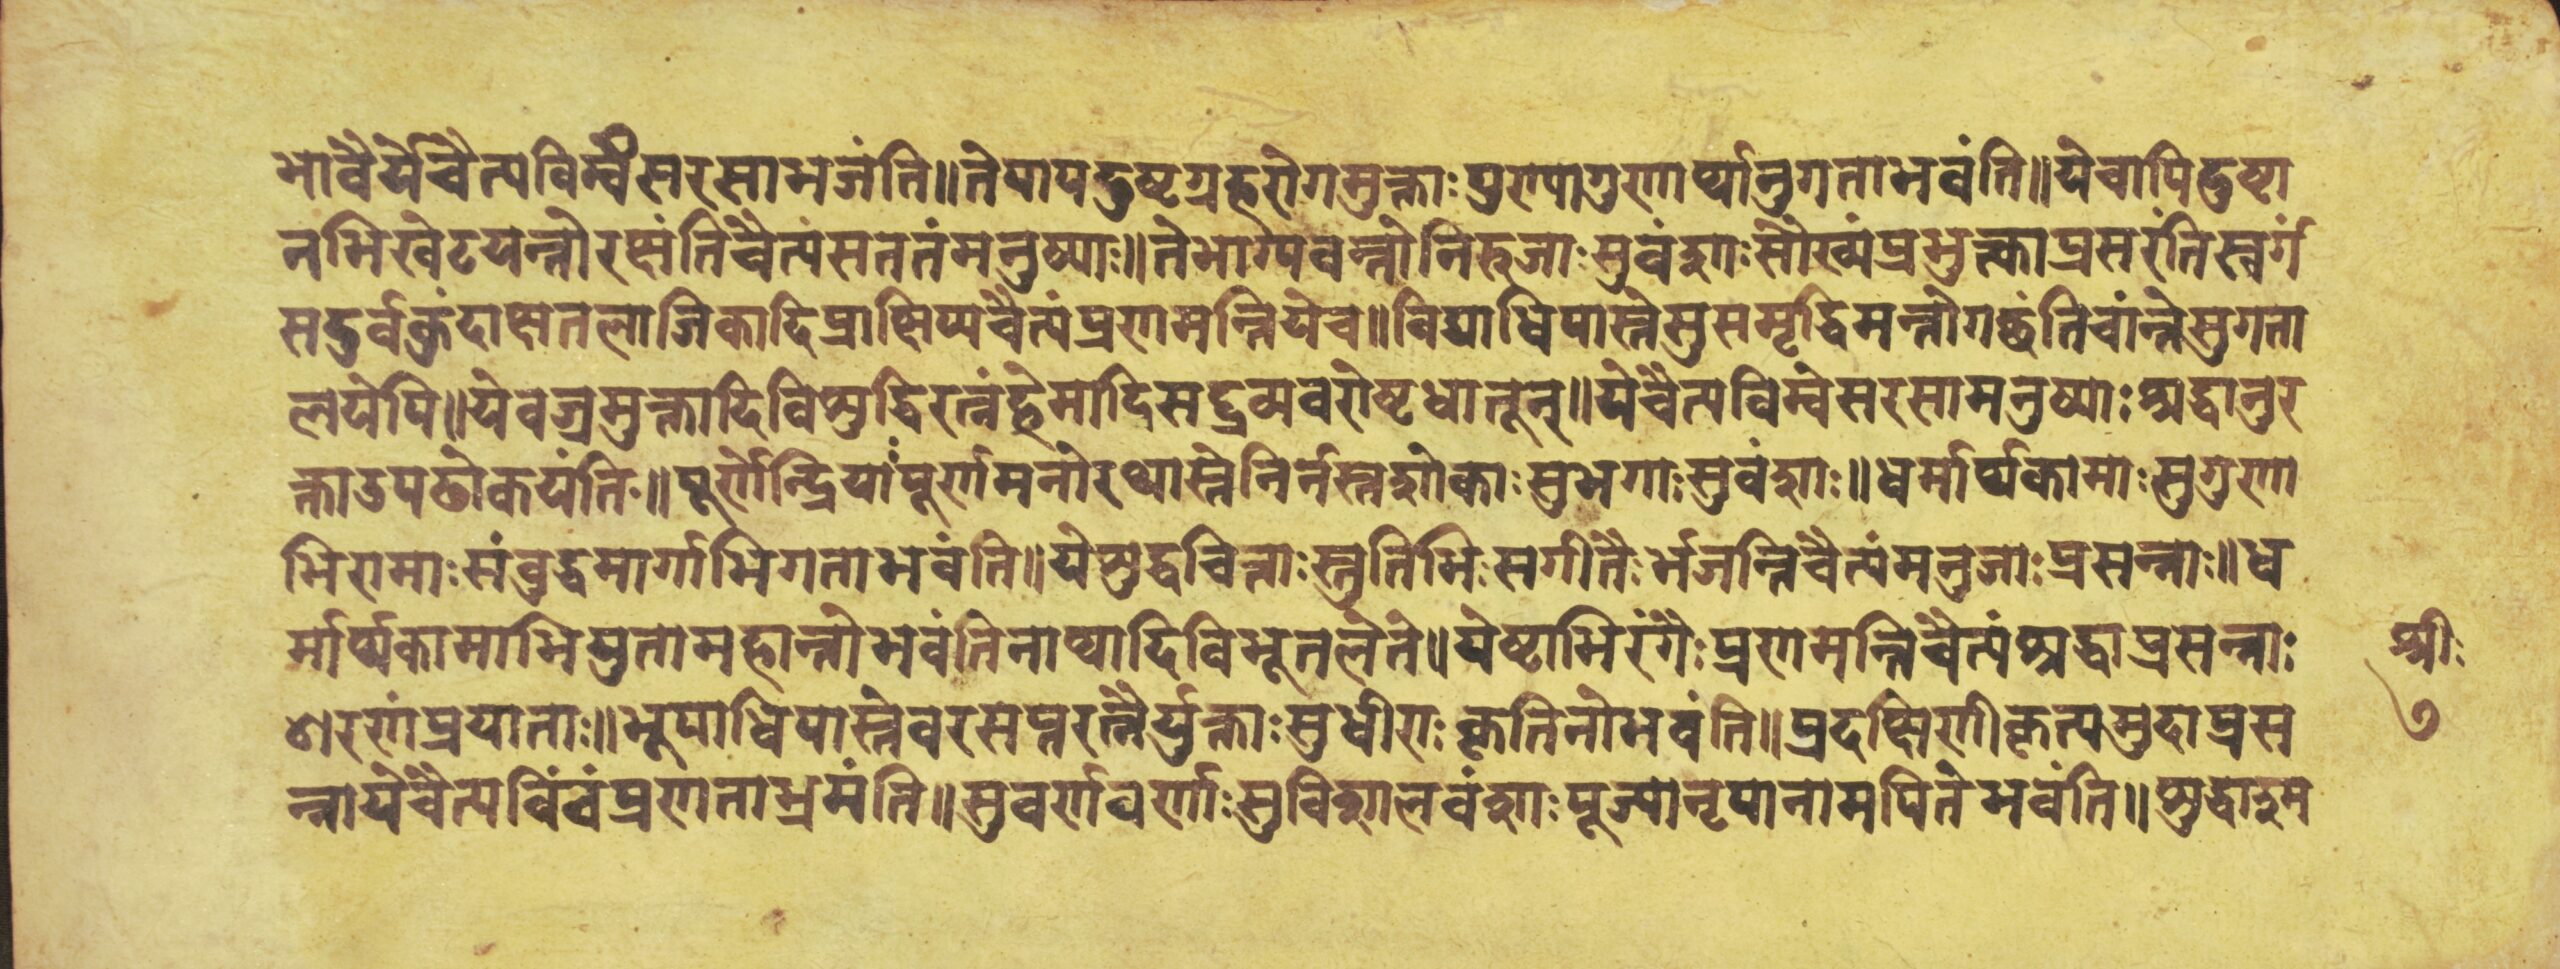 भावैर्येचैत्यविम्वंसरसाभजंति॥तेपापदुष्टग्रहरोगमुक्ताःपुरुषागुणार्थानुगताभवंति॥येचापिदुष्टा
नभिखेटयन्तोरक्षंतिचैत्यंसततंमनुष्याः॥तेभाग्यवन्तोनिरुजाःसुवंशाःसौख्यंप्रभुक्त्वाप्रसरंतिस्वर्गं
सदुर्वकुंदाक्षतलाजिकादिप्राक्षिप्यचैत्यंप्रणमन्तियेच॥विद्याधिपास्तेसुसमृद्धिमन्तोगछंतिचांन्तेसुगता
लयेपि॥येवज्रमुक्तादिविशुद्धिरत्नंहेमादिसद्द्रव्यवरोष्टधातून्॥येचैत्यविम्वेसरसामनुष्याःश्रद्धानुर
क्ताउपढोकयंतिः॥पूर्णेन्द्रियांपूर्णमनोरथास्तेनिर्नस्तशोकाःसुभगाःसुवंशाः॥धर्मार्थकामाःसुगुणा
भिरामाःसंवुद्धमार्गाभिगताभवंति॥येशुद्धचित्ताःस्तुतिभिःसगीतैःर्भजन्तिचैत्यंमनुजाःप्रसन्नाः॥ध
र्मार्थकामाभियुतामहान्तोभवंतिनाथादिविभूतलेते॥येष्टाभिरंगैःप्रणमन्तिचैत्यंश्रद्धाप्रसन्नाः
शरणंप्रयाताः॥भूपाधिपास्तेवरसप्तरत्नैर्युक्ताःसुधीराःकृतिनोभवंति॥प्रदक्षिणीकृत्यमुदाप्रस
न्नायेचैत्यविंवंप्रणताभ्रमंति॥सुवर्णवर्णाःसुविशालवंशाःपूज्यानृपानामपितेभवंति॥शुद्धादुम
श्रीः
७